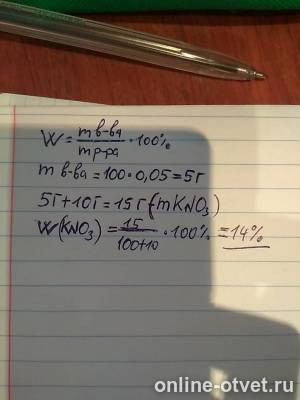 W = m в-ва / m р-ра · 100%
m в-ва = 100 · 0,05 = 5г
5г + 10г = 15г (m KNO₃)
W(KNO₃) = 15 / 100+10 · 100% = 14%
online-otvet.ru